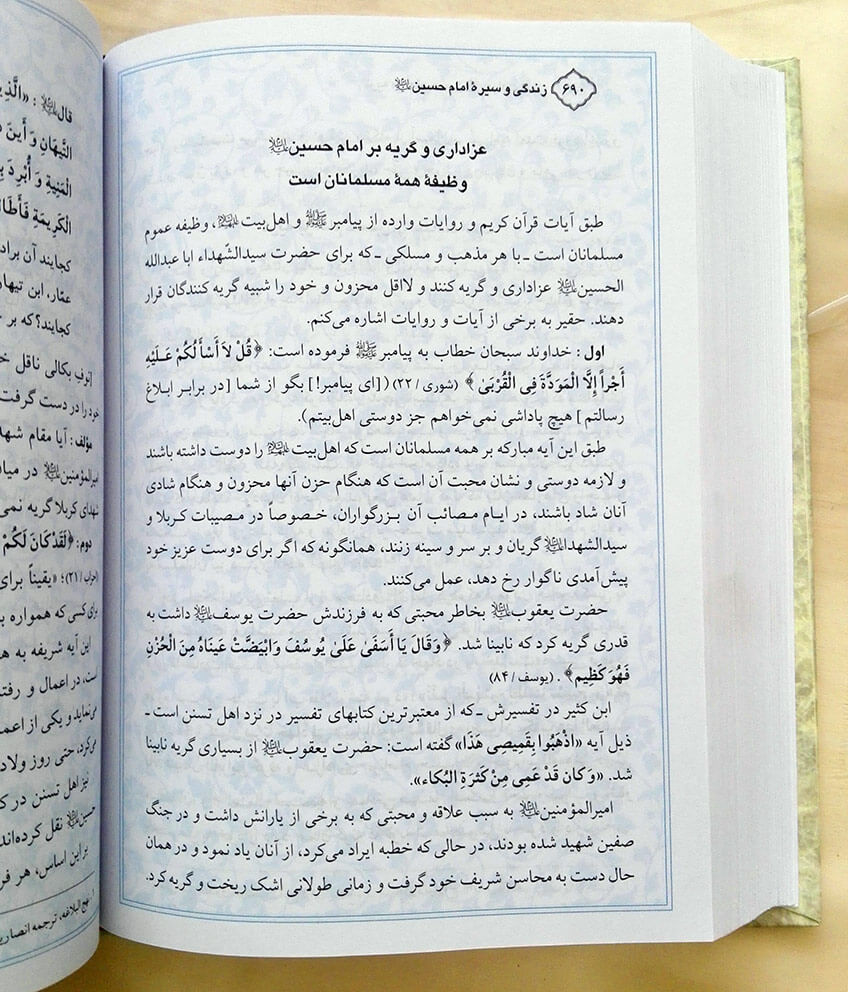 ۶۹۰ زندگی و سیرهٔ امام حسین علیه‌السلام
عزاداری و گریه بر امام حسین علیه‌السلام
وظیفهٔ همهٔ مسلمانان است
طبق آیات قرآن کریم و روایات وارده از پیامبر ﷺ و اهل‌بیت علیهم‌السلام، وظیفه عموم
مسلمانان است ـ با هر مذهب و مسلکی ـ که برای حضرت سیدالشّهداء ابا عبدالله
الحسین علیه‌السلام عزاداری و گریه کنند و لااقل محزون و خود را شبیه گریه کنندگان قرار
دهند. حقیر به برخی از آیات و روایات اشاره می‌کنم.
اول : خداوند سبحان خطاب به پیامبر ﷺ فرموده است: ﴿قُلْ لاَ أَسْأَلُكُمْ عَلَيْهِ
أَجْراً إِلَّا الْمَوَدَّةَ فِی الْقُرْبَىٰ﴾ (شوری / ۲۲) ([ای پیامبر!] بگو از شما [در برابر ابلاغ
رسالتم] هیچ پاداشی نمی‌خواهم جز دوستی اهل‌بیتم).
طبق این آیه مبارکه بر همه مسلمانان است که اهل‌بیت علیهم‌السلام را دوست داشته باشند
و لازمه دوستی و نشان محبت آن است که هنگام حزن آنها محزون و هنگام شادی
آنان شاد باشند، در ایام مصائب آن بزرگواران، خصوصاً در مصیبات کربلا و
سیدالشهدا علیه‌السلام گریان و بر سر و سینه زنند، همانگونه که اگر برای دوست عزیز خود
پیش‌آمدی ناگوار رخ دهد، عمل می‌کنند.
حضرت یعقوب علیه‌السلام بخاطر محبتی که به فرزندش حضرت یوسف علیه‌السلام داشت به
قدری گریه کرد که نابینا شد. ﴿وَقَالَ يَا أَسَفَىٰ عَلَىٰ يُوسُفَ وَابْيَضَّتْ عَيْنَاهُ مِنَ الْحُزْنِ
فَهُوَ كَظِيم﴾. (یوسف / ۸۴)
ابن کثیر در تفسیرش ـ که از معتبرترین کتابهای تفسیر در نزد اهل تسنن است ـ
ذیل آیه «اذْهَبُوا بِقَمِيصِی هَذَا» گفته است: حضرت یعقوب علیه‌السلام از بسیاری گریه نابینا
شد. «وَكان قَدْ عَمِیَ مِنْ كَثرَةِ البُكاء».
امیرالمؤمنین علیه‌السلام به سبب علاقه و محبتی که به برخی از یارانش داشت و در جنگ
صفین شهید شده بودند، در حالی که خطبه ایراد می‌کرد، از آنان یاد نمود و در همان
حال دست به محاسن شریف خود گرفت و زمانی طولانی اشک ریخت و گریه کرد.
قال علیه‌السلام : «الَّذِی
التَّیهَانِ وَ أَینَ
الْمَنِیةِ وَ أُبْرِدَ
الْكَرِیمَةِ فَأَطَالَ
کجایند آن
عمّار، ابن تیهان
کجایند؟ که بر
بکالی ناقل
خود را در دست گرفت
مؤلف : آیا مقام
امیرالمؤمنین علیه‌السلام در
شهدای کربلا گریه نمی
دوم: ﴿لَقَدْ كَانَ لَكُمْ
احزاب / ۲۱)؛ «یقیناً برای
برای کسی که همواره
این آیه شریفه به
است، در اعمال و
می‌نماید و یکی از
می‌کرد، حتی روز
نیز اهل تسنن در
حسین علیه‌السلام نقل کرده‌اند
بر این اساس، هر
نهج البلاغه، ترجمه